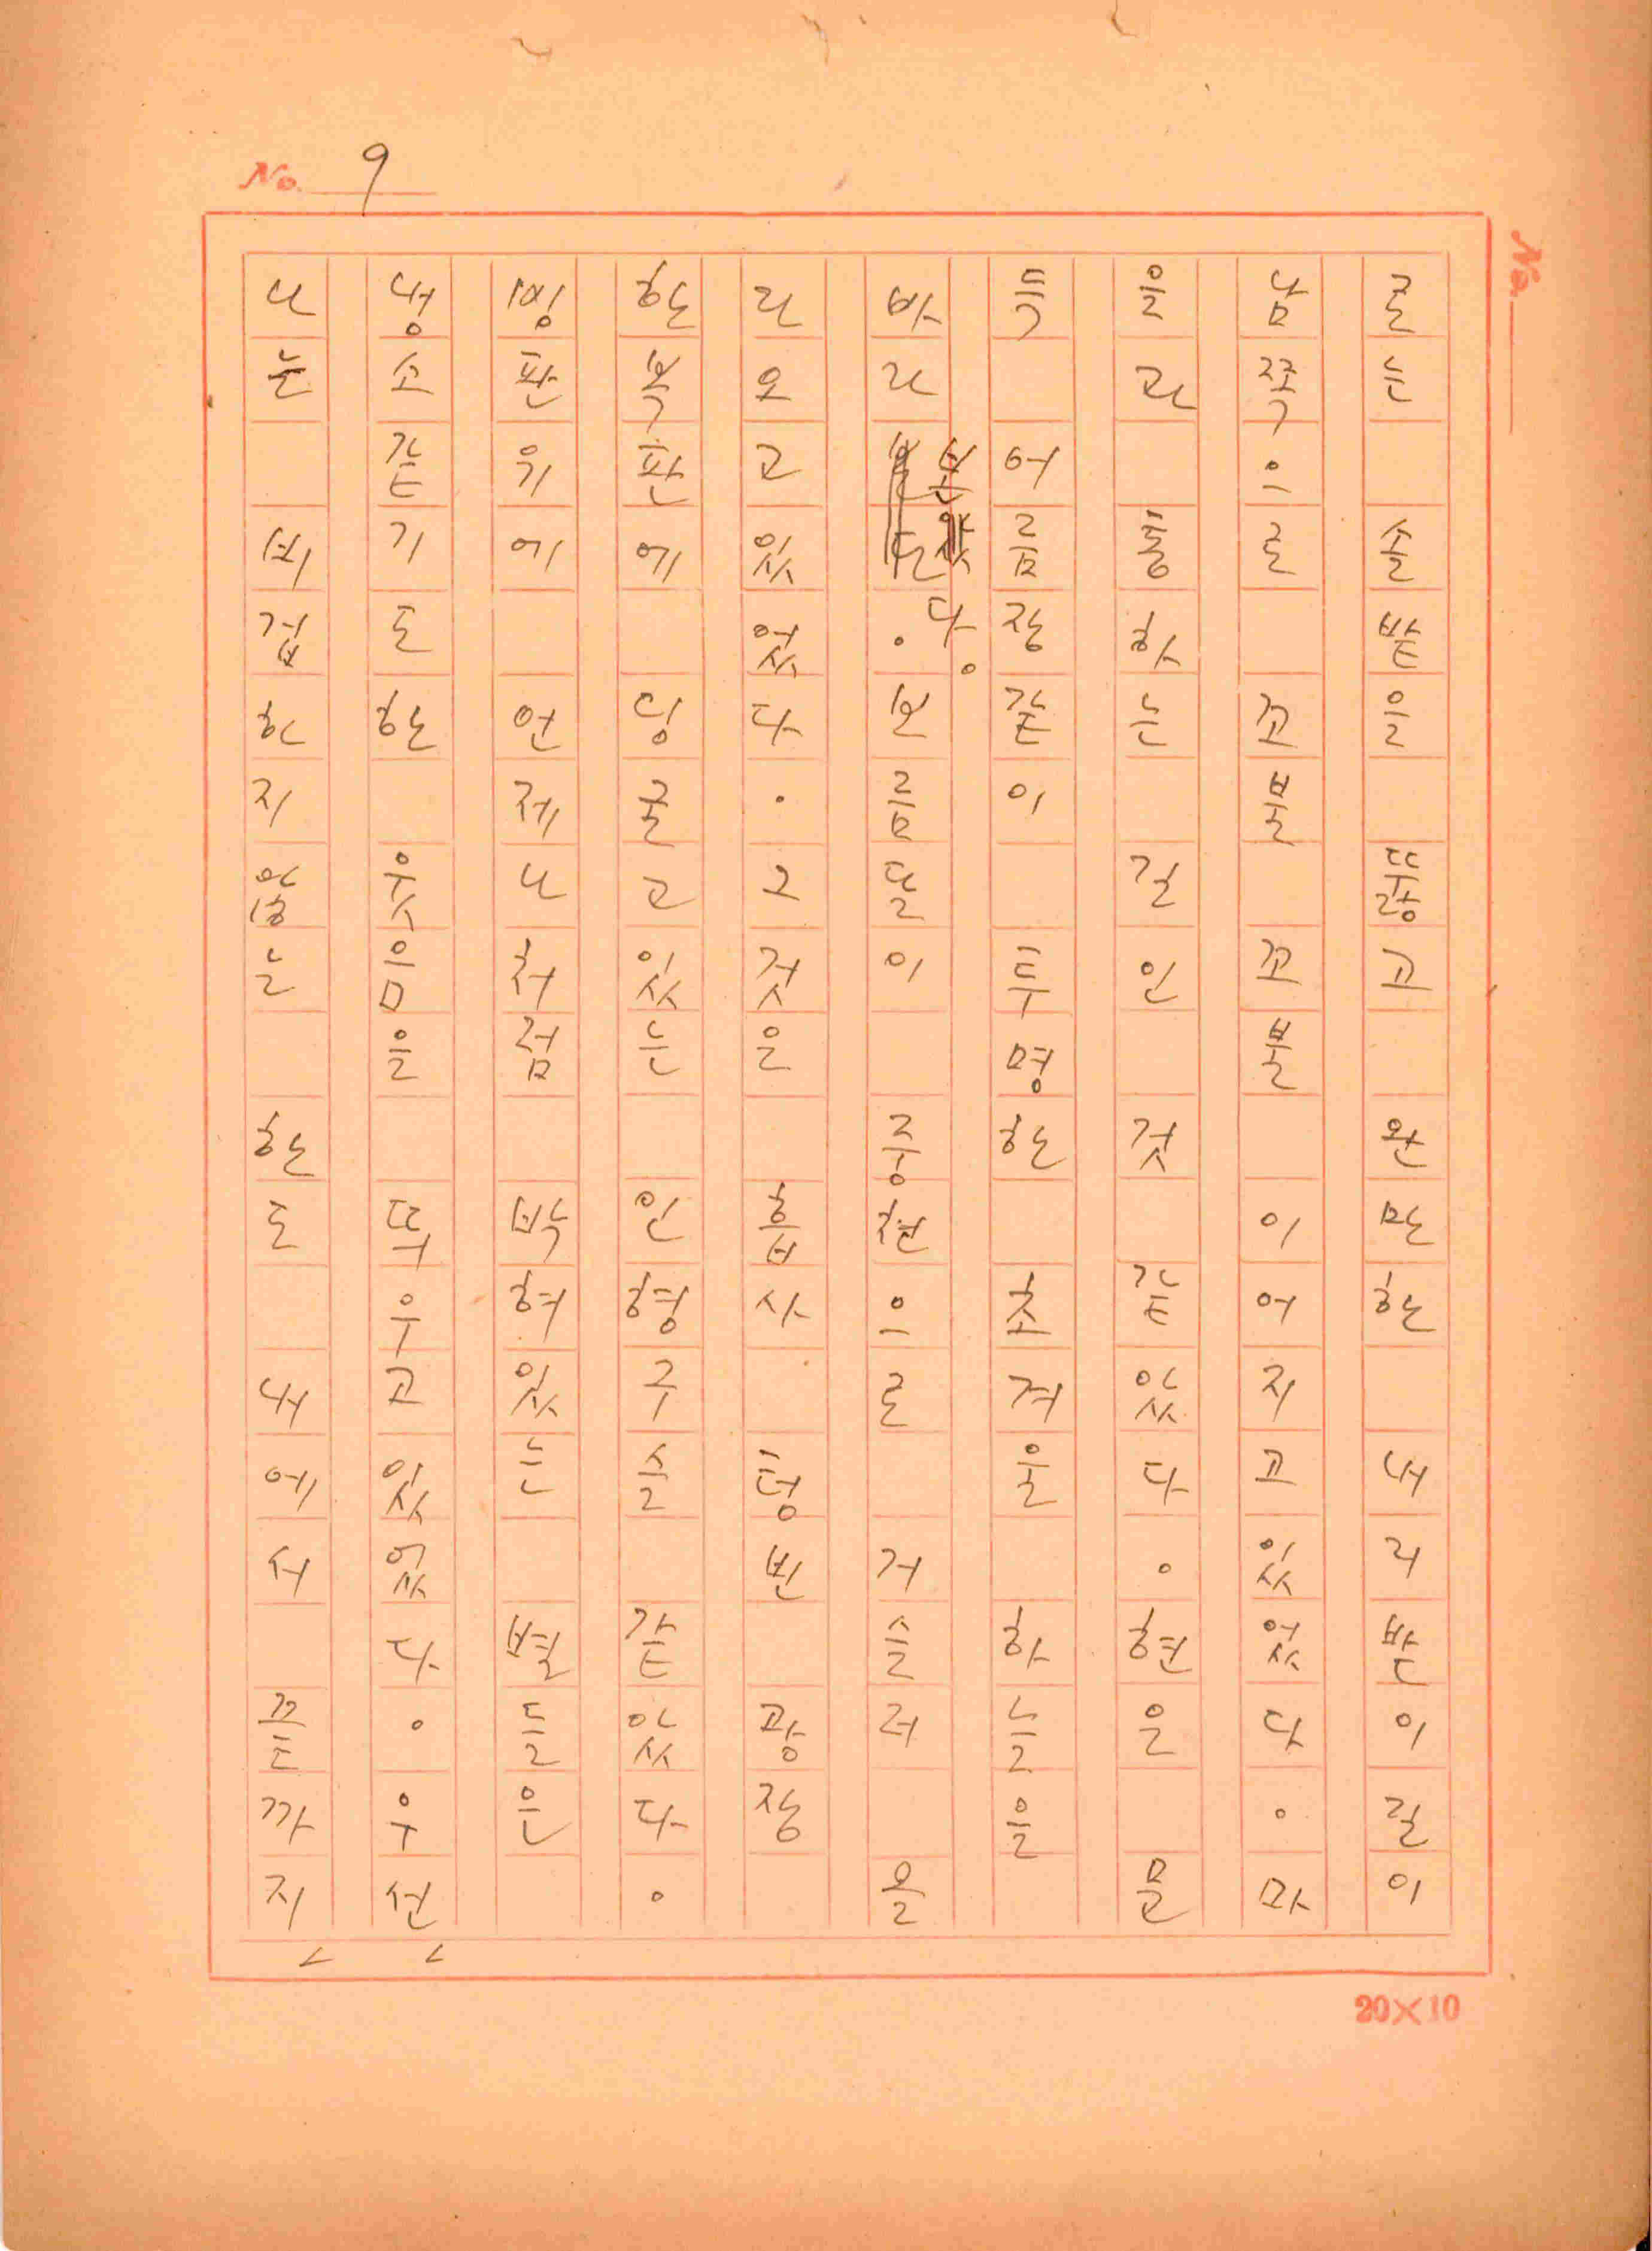 로는 솔밭을 뚫고 완만한 내리받이 길이
남쪽으로 꼬불 꼬불 이어지고 있었다. 마
을과 통하는 길인 것 같았다. 현은 문
득 어름장같이 투명한 차거운 하늘을
바라 보았다. 보름달이 중천으로 거슬러 올
라오고 있었다. 그것은 흡사 텅빈 광장
한복판에 딩굴고있는 인형구슬 같았다.
빙판위에 언제나처럼 박혀있는 별들은
냉소같기도한 웃음을 띄우고있었다. 우선
나는 비겁하지않을 한도 내에서 끝까지
No. 9
No.
20×10